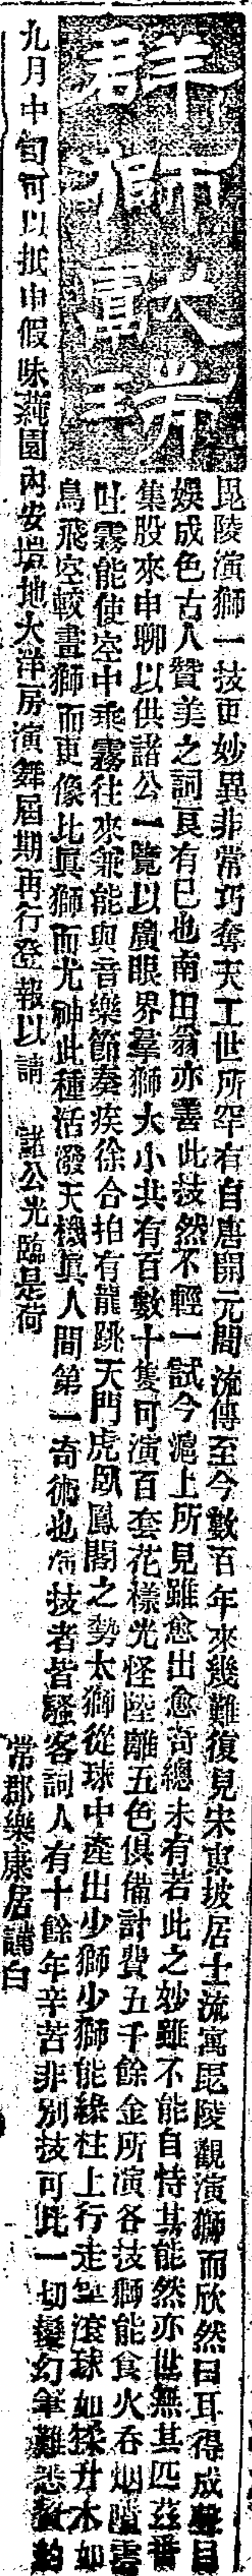 羣獅獻瑞
君獅富主
毘陵演獅一技更妙異非常巧奪天工世所罕有自唐開元間流傳至今數百年來幾難復見宋東坡居士流寓毘陵觀演獅而欣然曰耳得成聲目
娛成色古人贊美之詞良有已也南田翁亦善此技然不輕一試今滬上所見雖愈出愈奇總未有若此之妙雖不能自恃其能然亦世無其匹茲番
集股來申聊以供諸公一覽以廣眼界羣獅大小共有百數十隻可演百套花樣光怪陸離五色俱備計費五千餘金所演各技獅能食火吞烟噴雲
吐霧能使空中乘霧往來兼能與音樂節奏疾徐合拍有龍跳天門虎臥鳳閣之勢太獅從球中產出少獅少獅能緣柱上行走空滾球如猱升木如
鳥飛空較畫獅而更像比眞獅而尤神此種活潑天機眞人間第一奇術也演技者皆騷客詞人有十餘年辛苦非別技可比一切變幻筆難悉數約
九月中旬可以抵申假味蒓園內安塏地大洋房演舞屆期再行登報以請 諸公光臨是荷
常郡樂康居謹白